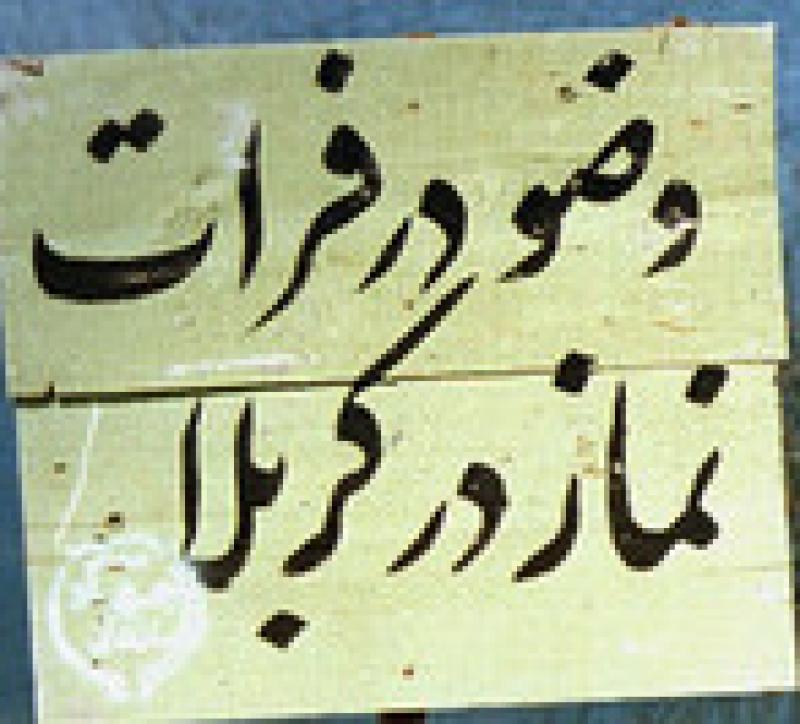 وضو در فرات
نماز در کربلا